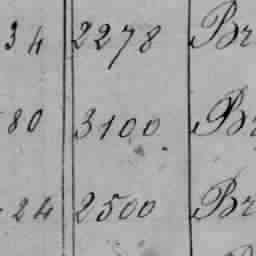 34 2278 Br
80 3100 Br
24 2500 Br